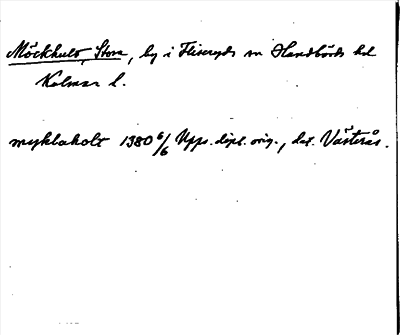 Möckhult, Stora, by i Fliseryds sn Handbörds hd
Kalmar l.
myklaholt 1380 6/6 Upps. dipl. orig., dat. Västerås.